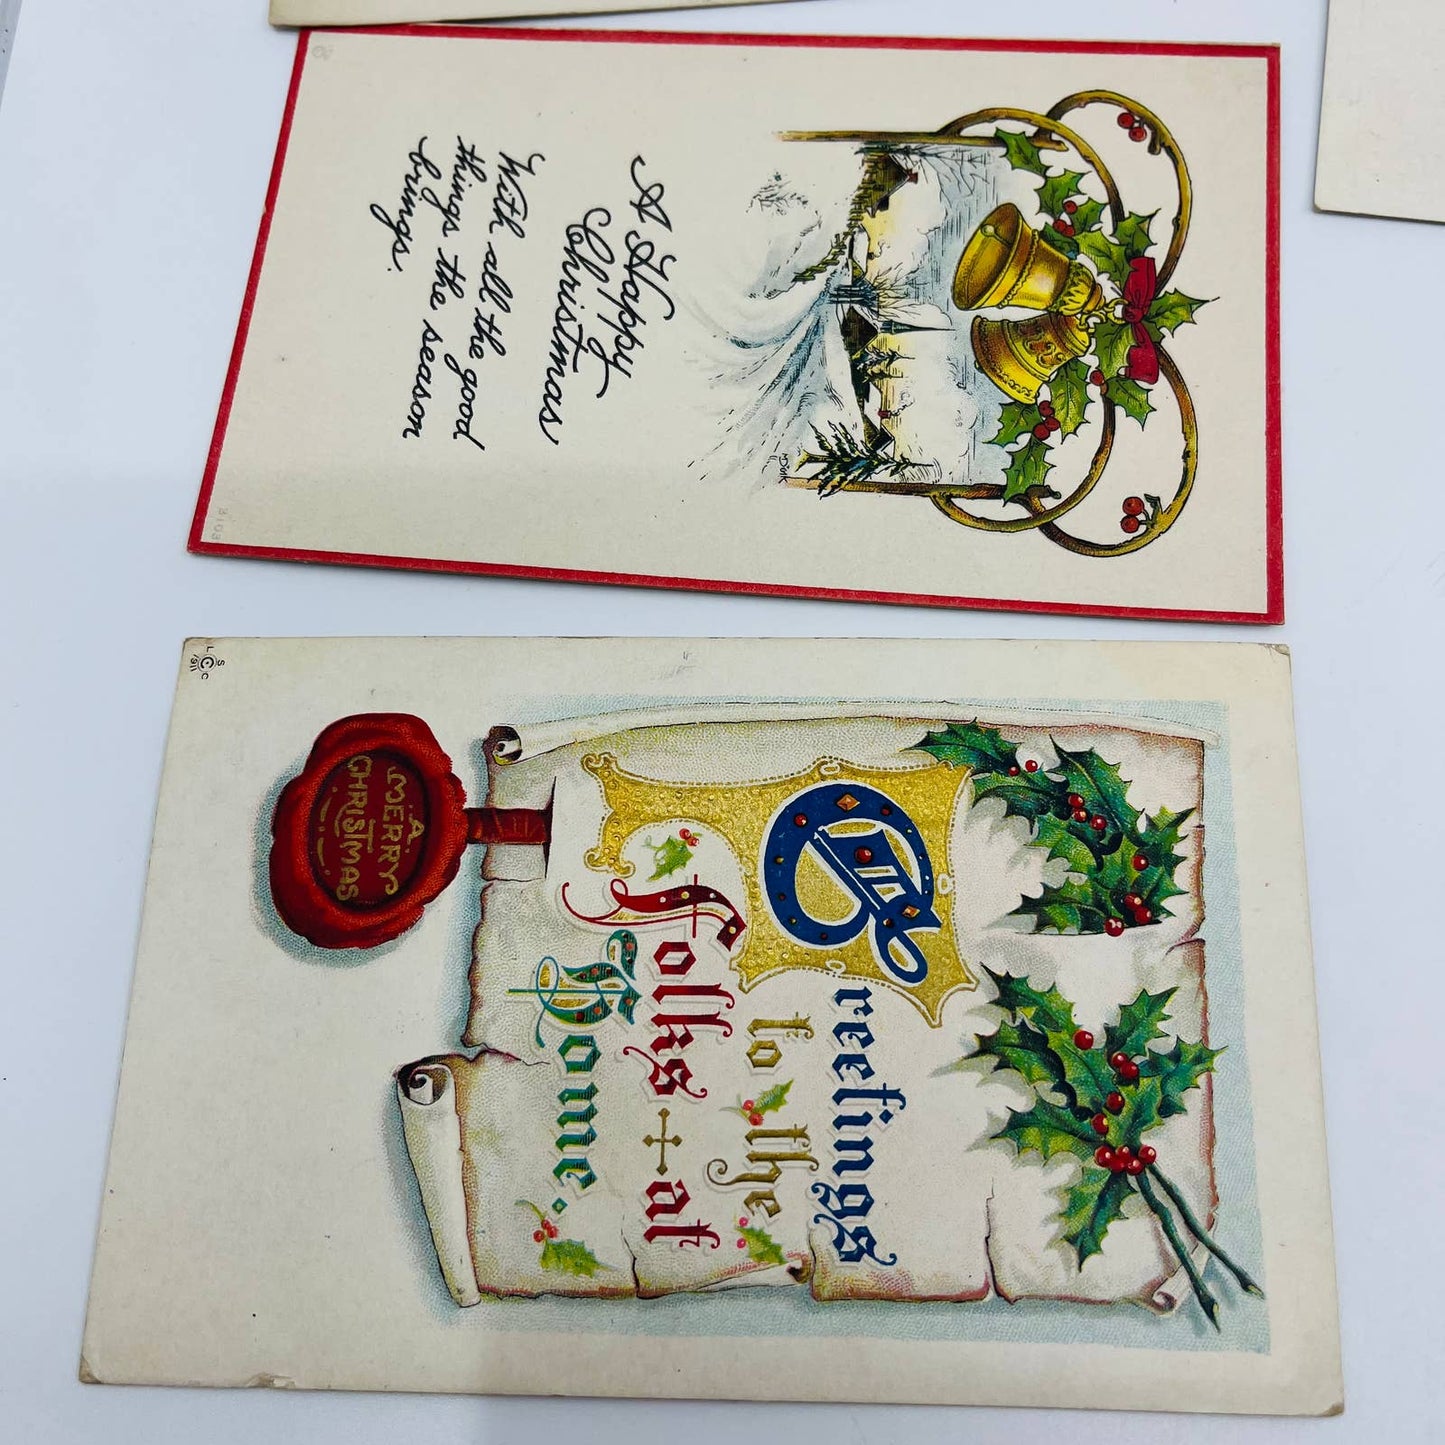 A Happy
Christmas
With all the good
things the season
brings.
8103
Greetings
to the
Folks at
Home.
A
MERRY
CHRISTMAS
L S C
© 1911